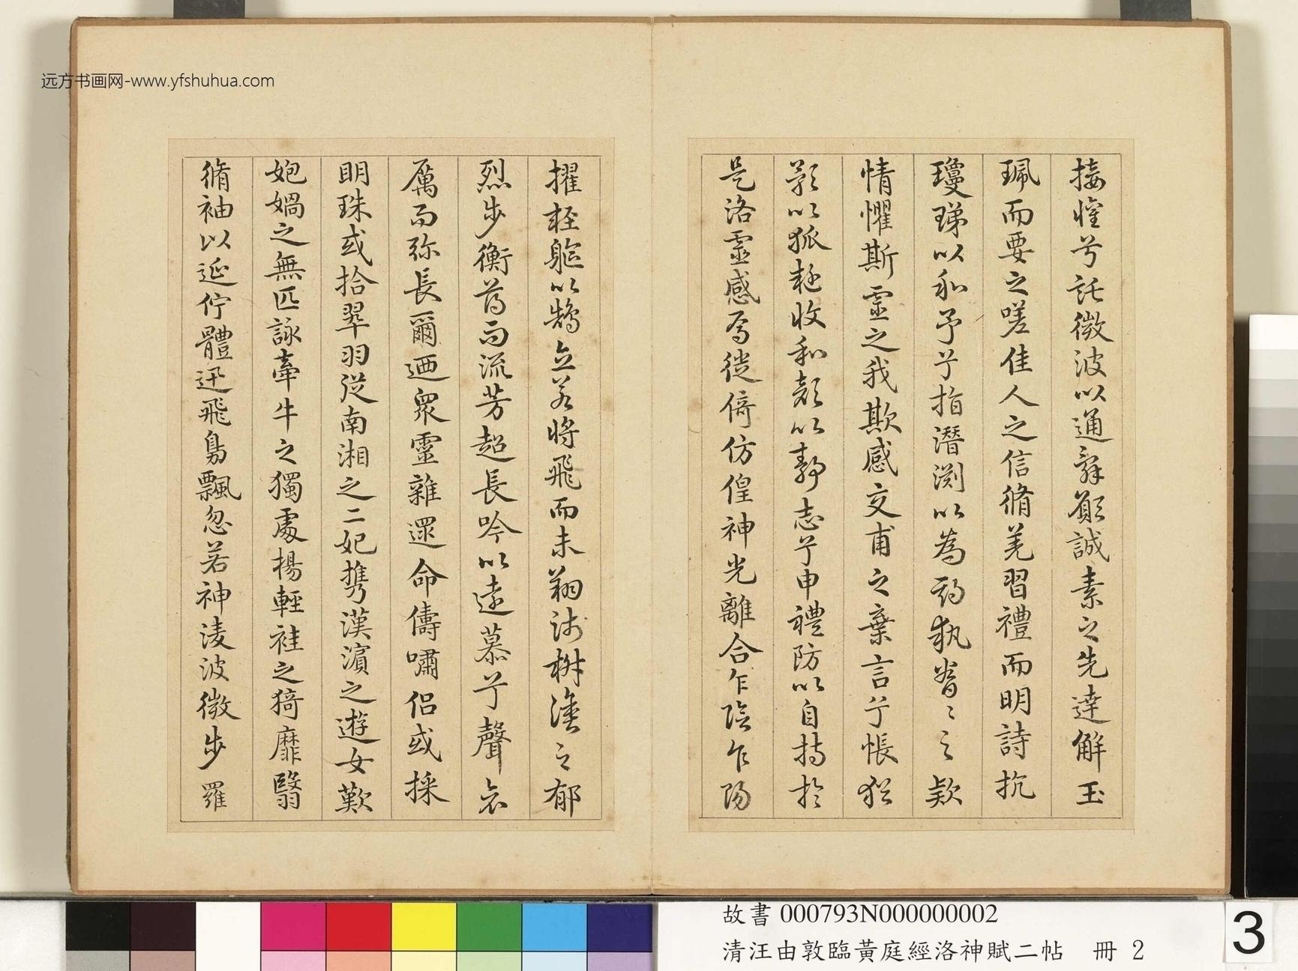 远方书画网-www.yfshuhua.com
接懽兮託微波以通辭願誠素之先達解玉
珮而要之嗟佳人之信脩羌習禮而明詩抗
瓊珶以和予兮指潛渕以為期執眷〻之款
情懼斯靈之我欺感交甫之棄言兮悵猶
以狐疑收和顏以靜志兮申禮防以自持於
是洛靈感焉徙倚仿偟神光離合乍陰乍陽
擢輕軀以鶴立若將飛而未翔踐椒塗之郁
烈步蘅薄而流芳超長吟以遠慕兮聲哀
厲而弥長爾迺衆靈雜遝命儔嘯侶或採
明珠或拾翠羽從南湘之二妃携漢濱之遊女歎
匏媧之無匹詠牽牛之獨處楊輕袿之猗靡翳
脩袖以延佇體迅飛鳧飄忽若神淩波微步羅
故書 000793N000000002
清汪由敦臨黃庭經洛神賦二帖 冊 2
3